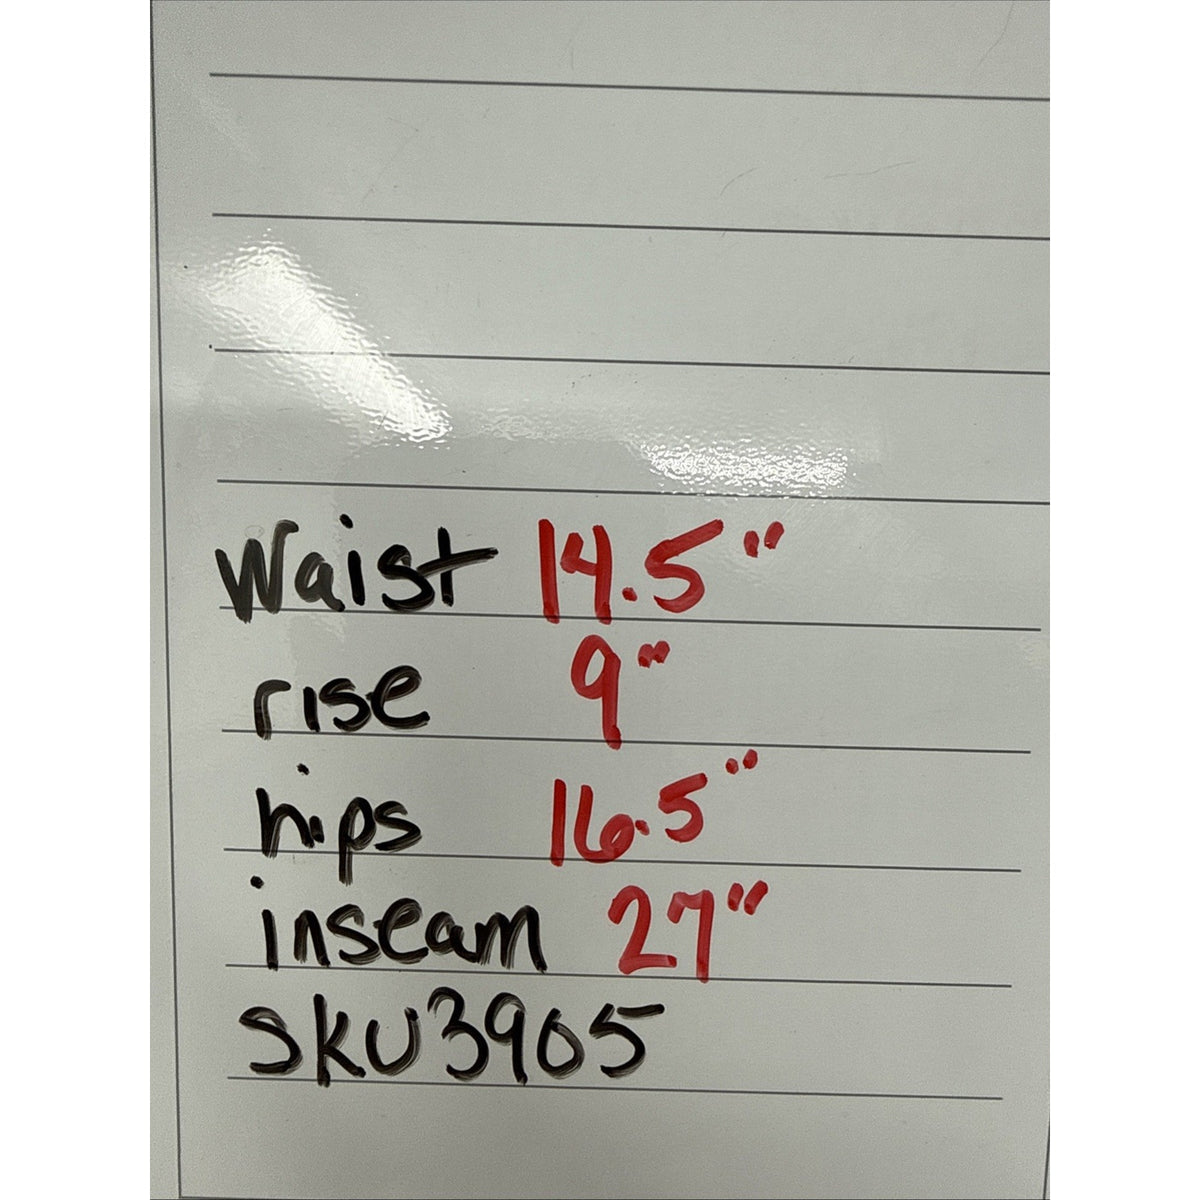 Waist 14.5"
rise 9"
hips 16.5"
inseam 27"
SKU3905